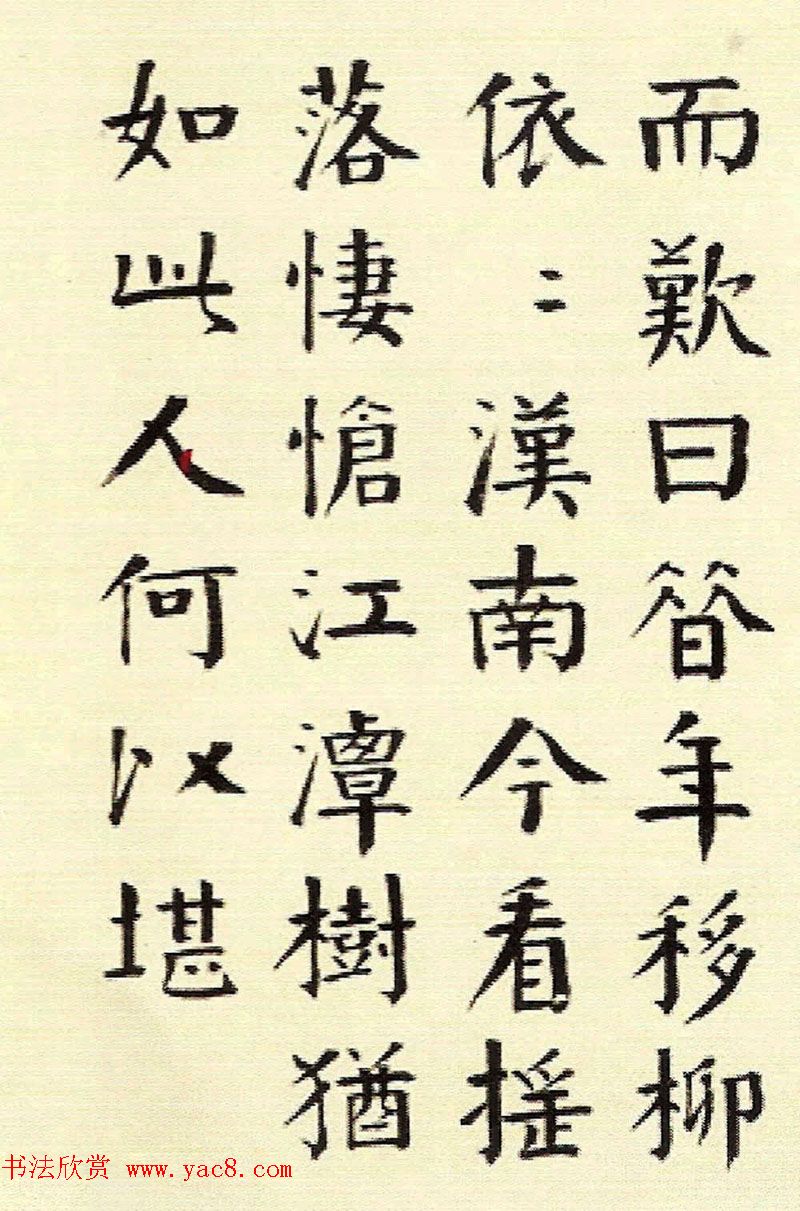 而歎曰昝年移柳
依〻漢南今看摇
落悽愴江潭樹猶
如此人何以堪
书法欣赏 www.yac8.com